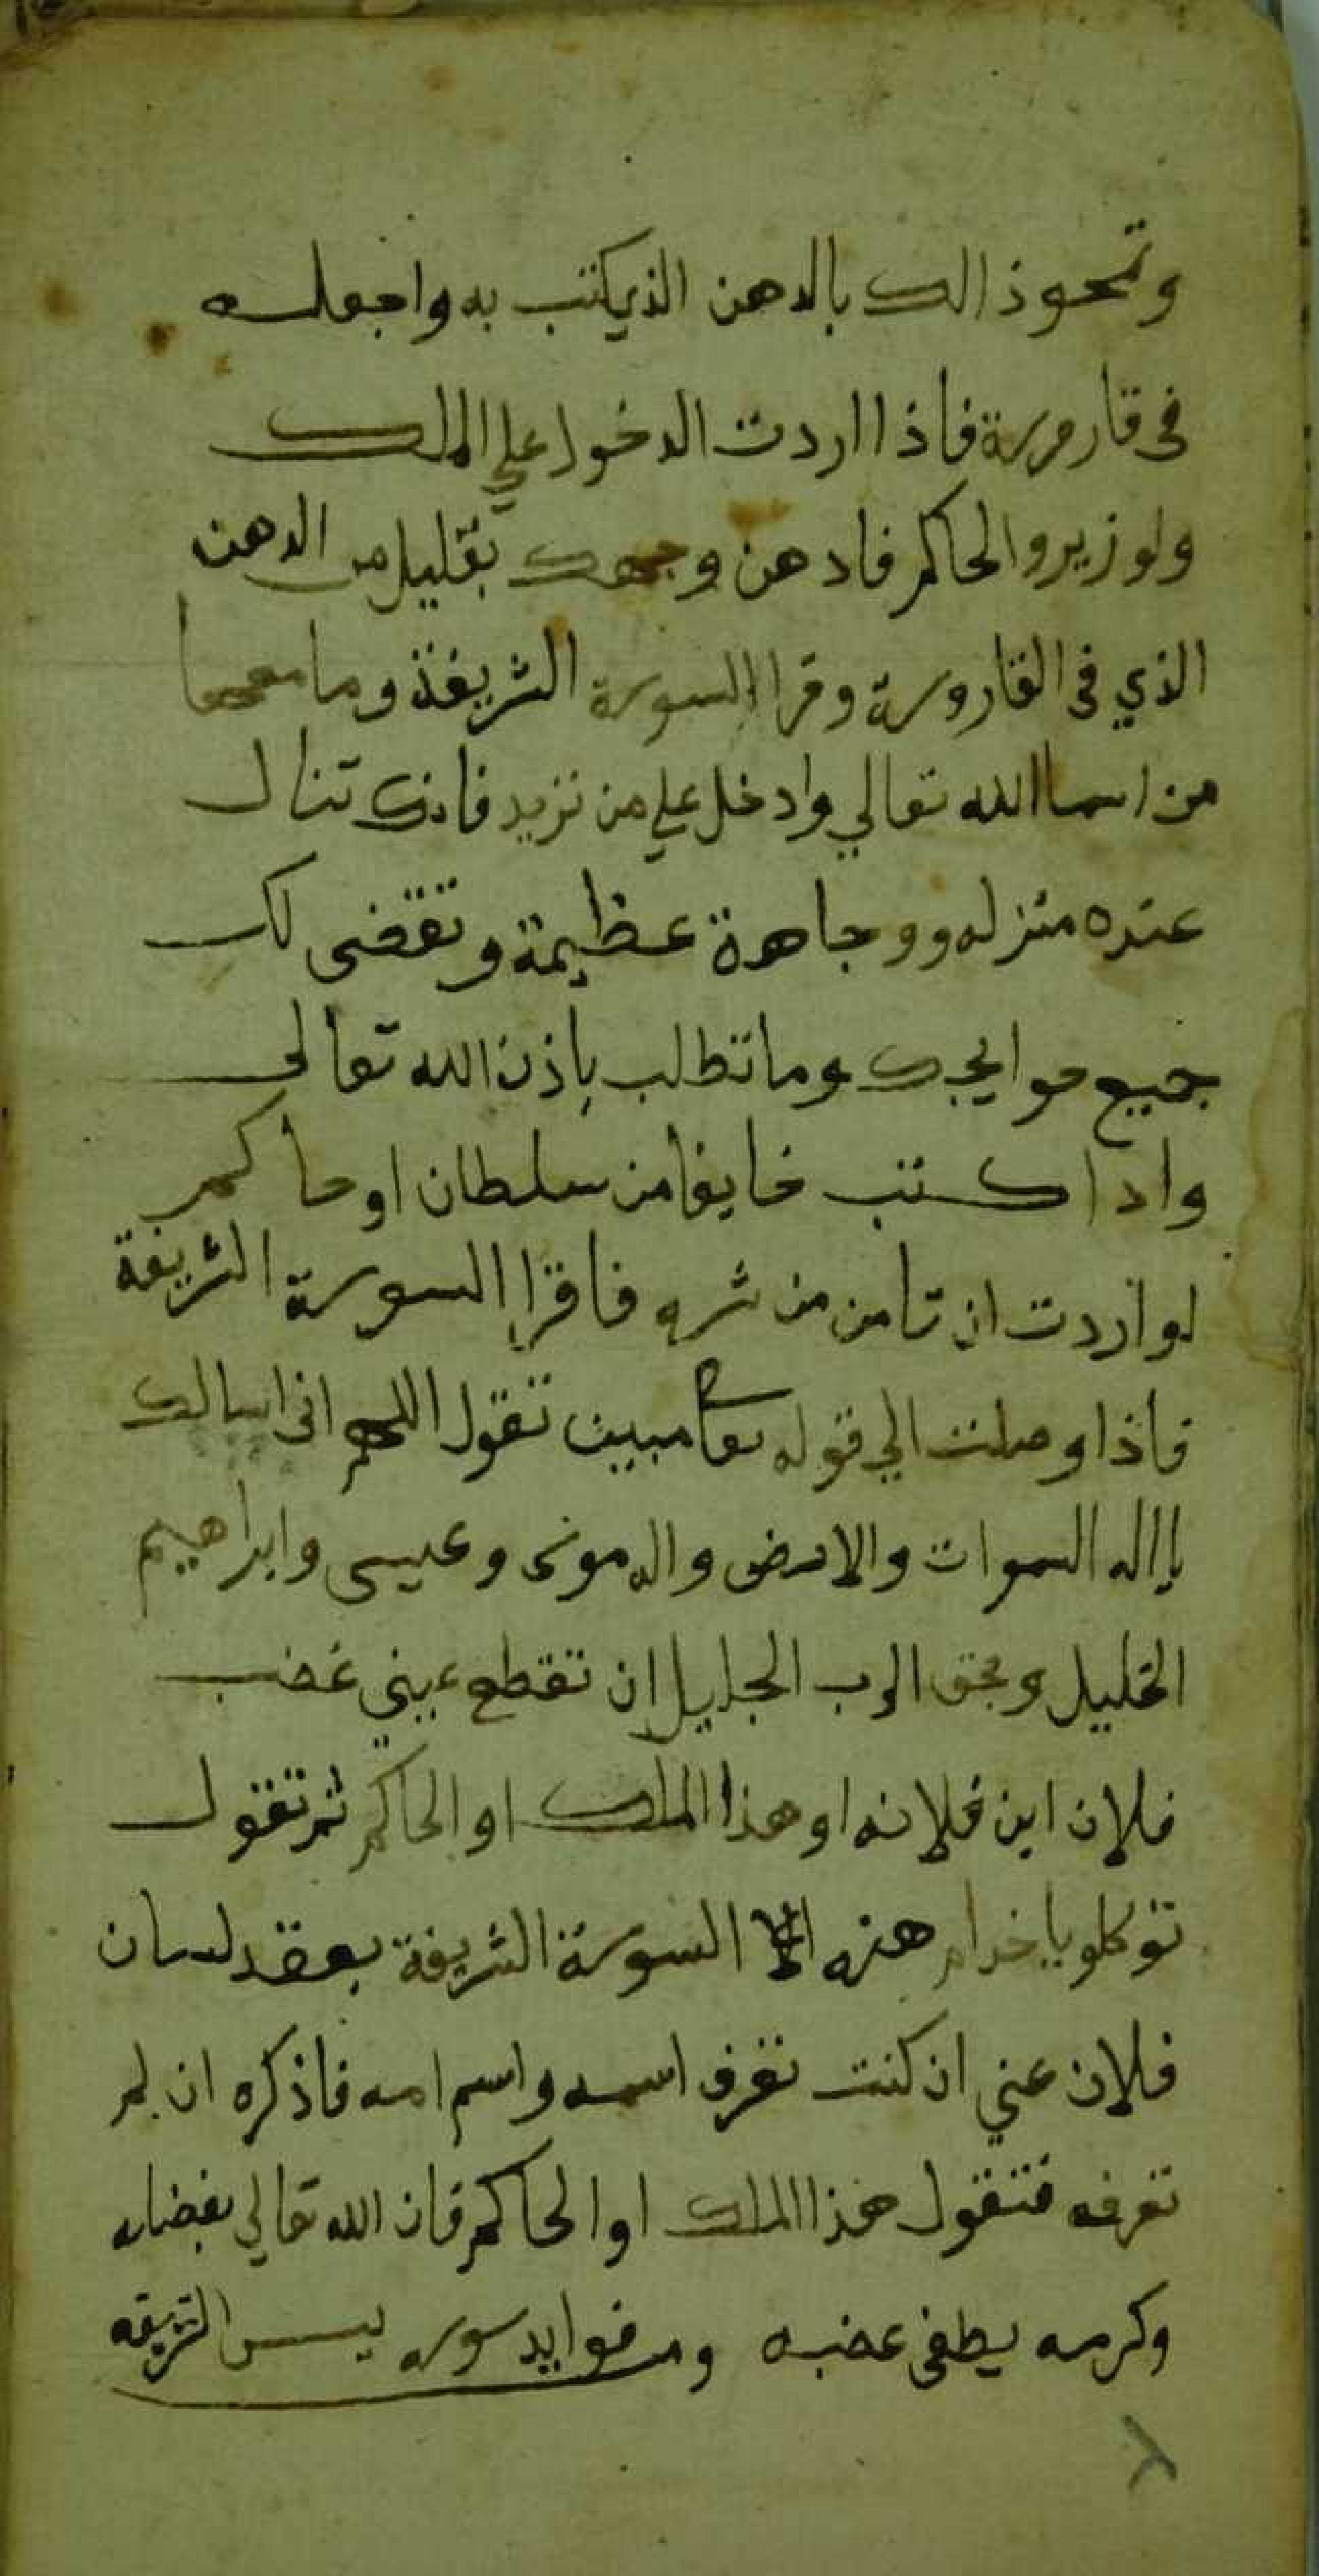 وتمحوذالك بالدهن الذي يكتب به واجعله
فى قارورة فاذا اردت الدخول علي الملك
ولوزير والحاكم فادهن وجهك بقليل من الدهن
الذي فى القارورة وقرا السورة الشريفة وما معها
من اسما الله تعالي وادخل علي من تريد فانك تنال
عنده منزله ووجاهة عظيمة وتقضى لك
جميع حوايجك وما تطلب باذن الله تعالى
وادا كنت خايفا من سلطان او حاكم
لو اردت ان تامن من شره فاقرا السورة الشريفة
فاذا وصلت الي قوله تعا مبين تقول اللهم انى اسالك
يا اله السموات والارض واله موسى وعيسى وابراهيم
الخليل وبحق الرب الجليل ان تقطع عني غضب
فلان ابن فلانه او هذا الملك او الحاكم ثم تقول
توكلو يا خدام هذه السورة الشريفة بعقد لسان
فلان عني ان كنت تعرف اسمه واسم امه فاذكره ان لم
تعرفه فتقول هذا الملك او الحاكم فان الله تعالي بفضله
وكرمه يطفى غضبه ومن فوايد سوره يس الشريفه
٨